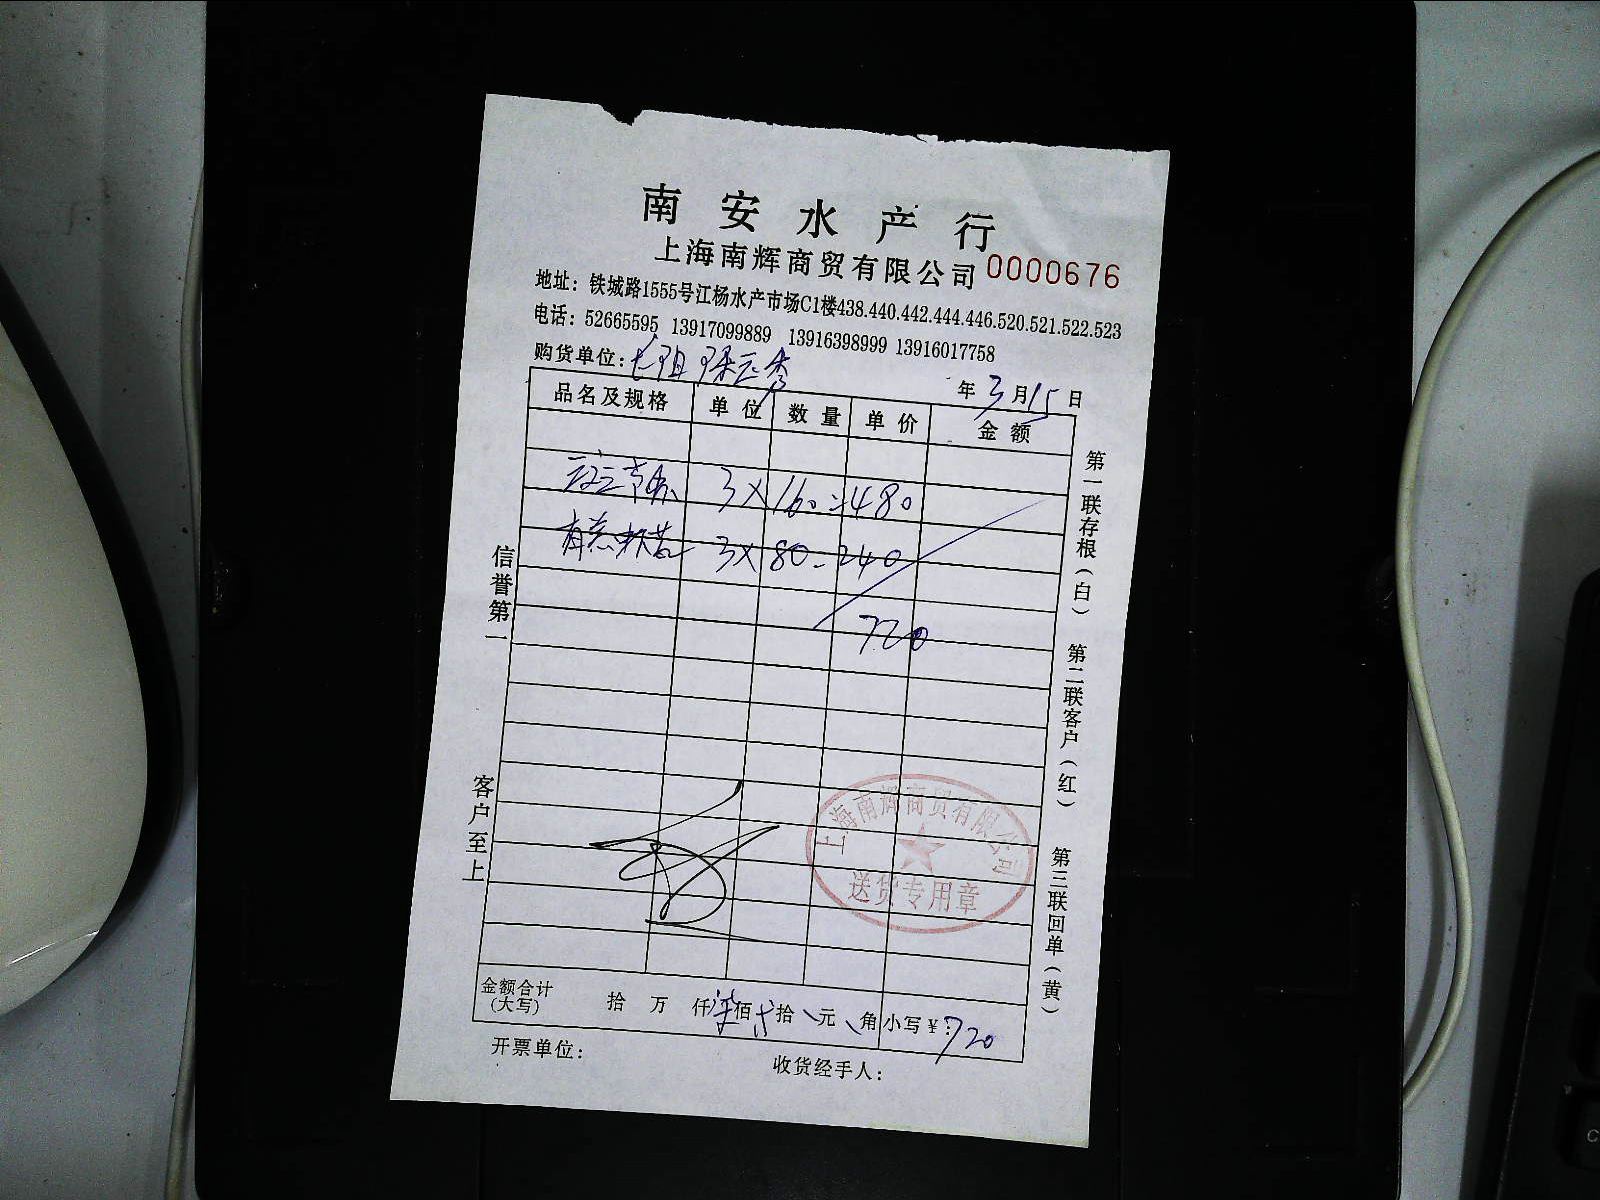 南安水产行
上海南辉商贸有限公司 0000676
地址：铁城路1555号江杨水产市场C1楼438.440.442.444.446.520.521.522.523
电话：52665595 13917099889 13916398999 13916017758
购货单位：
年 3 月 15 日
品名及规格 单位 数量 单价 金额
3×160=480
3×80=240
720
信誉第一
客户至上
第一联存根（白）
第二联客户（红）
第三联回单（黄）
上海南辉商贸有限公司
送货专用章
金额合计（大写） 拾 万 仟 柒 佰 贰 拾 元 角 小写￥：720
开票单位： 收货经手人：